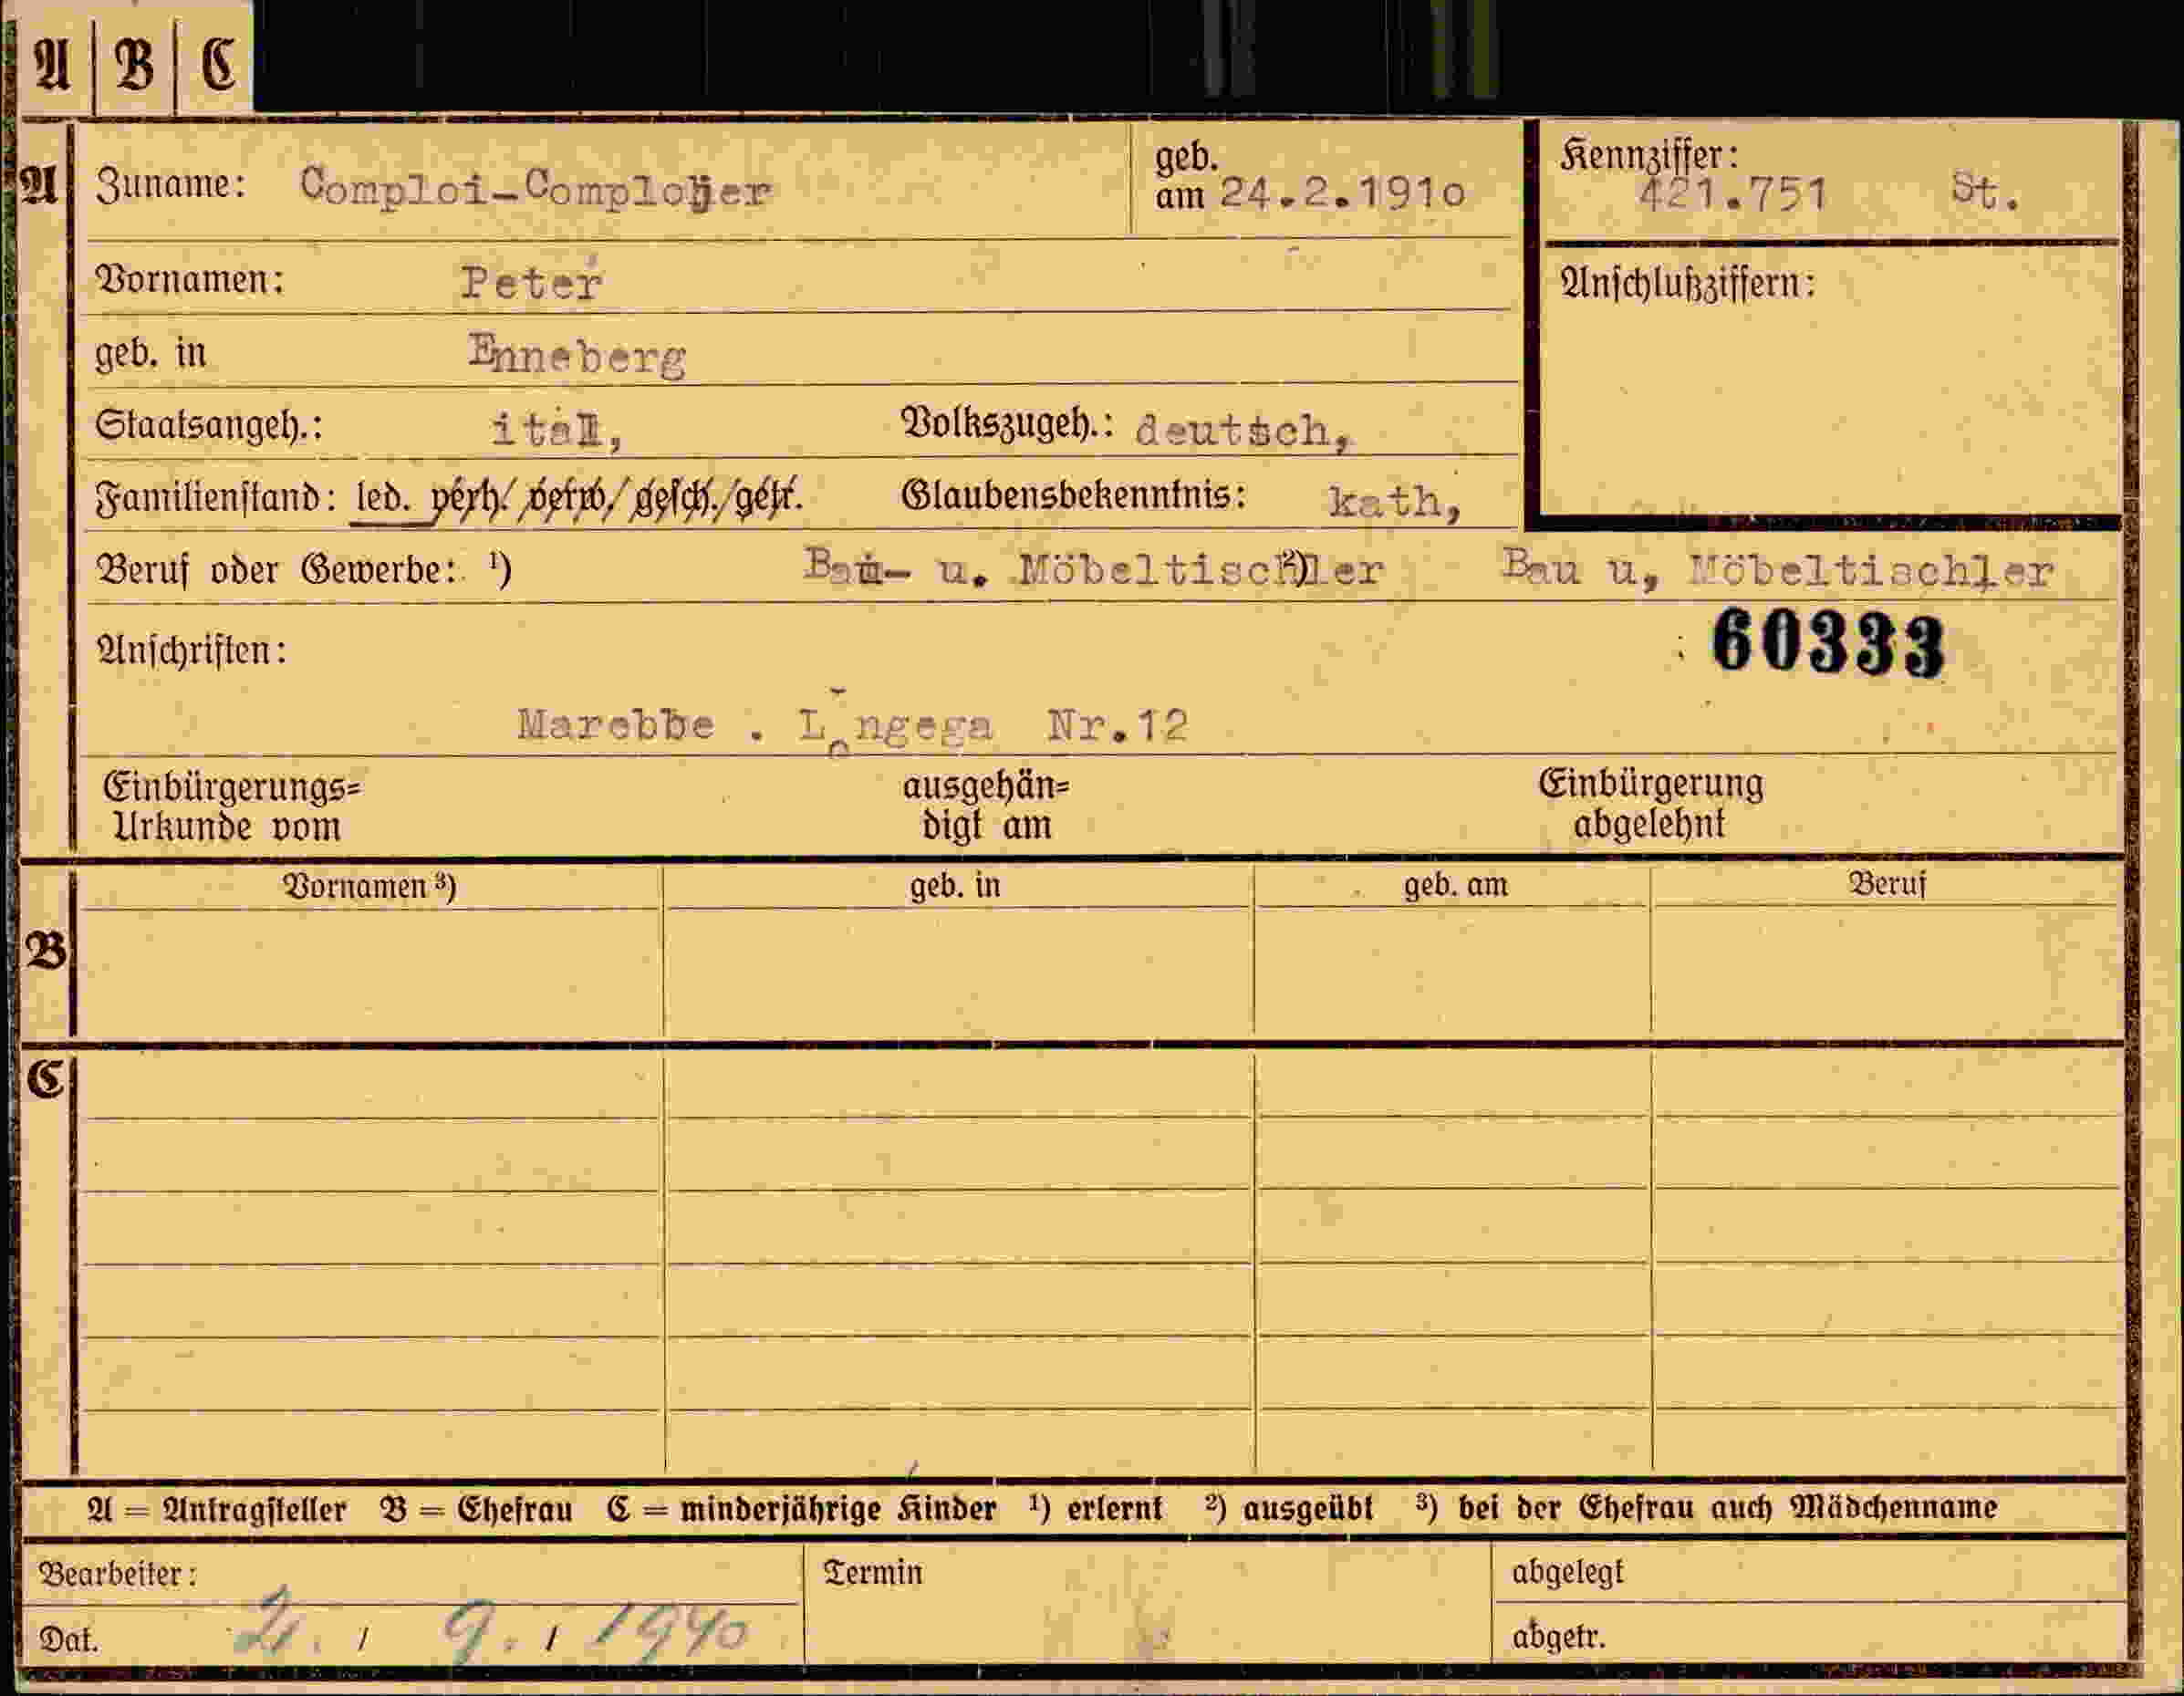 A B C
A Zuname: Comploi-Comployer geb. am 24.2.1910 Kennziffer: 421.751 St.
Vornamen: Peter Anschlußziffern:
geb. in Enneberg
Staatsangeh.: ital, Volkszugeh.: deutsch,
Familienstand: led. verh./verw./gesch./getr. Glaubensbekenntnis: kath,
Beruf oder Gewerbe: ¹) Bau- u. Möbeltischler ²) Bau u, Möbeltischler
Anschriften: 60333
Marebbe . Longega Nr.12
Einbürgerungs= ausgehän= Einbürgerung
Urkunde vom digt am abgelehnt
Vornamen ³) geb. in geb. am Beruf
B
C
A = Antragsteller B = Ehefrau C = minderjährige Kinder ¹) erlernt ²) ausgeübt ³) bei der Ehefrau auch Mädchenname
Bearbeiter: Termin abgelegt
Dat. 9. 1940 abgetr.